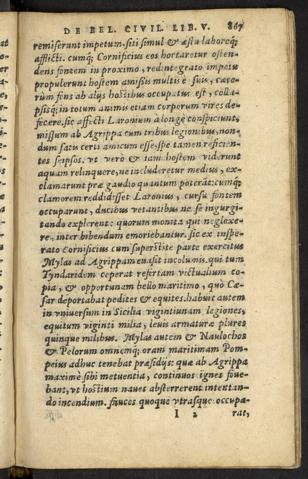 DE BEL. CIVIL. LIB. V. 867
remiserant impetum. siti simul & æstu laboreq́;
afflicti. cumq́; Cornificius eos hortaretur osten-
dens fontem in proximo, redintegrato impetu
propulerunt hostem amissis multis è suis, cæte-
rùm fons ab alijs hostibus occupatus est, colla-
psisq́; in totum animis etiam corporum vires de-
fecere. sic affecti Laronium à longè conspiciunt,
missum ab Agrippa cum tribus legionibus, non-
dum satis certi amicum esse. spe tamen reficien-
tes seipsos. vt verò & iam hostem viderunt
aquam relinquere, ne includeretur medius, ex-
clamarunt præ gaudio quantum poterāt: cumq́;
clamorem reddidisset Laronius, cursu fontem
occuparunt, ducibus vetantibus ne se ingurgi-
tando explerent: quorum monita qui neglexe-
re, inter bibendum emoriebantur. sic ex inspe-
rato Cornificius cum superstite parte exercitus
Mylas ad Agrippam euasit incolumis. qui tum
Tyndaridem ceperat refertam victualium co-
pia, & opportunam bello maritimo, quò Cæ-
sar deportabat pedites & equites. habuit autem
in vniuersum in Sicilia vigintiunam legiones,
equitum viginti milia, leuis armaturæ plures
quinque milibus. Mylas autem & Naulochos
& Pelorum omnemq́; oram maritimam Pom-
peius adhuc tenebat præsidijs: quæ ab Agrippa
maximè sibi metuentia, continuos ignes foue-
bant, vt hostium naues absterrerent intentan-
do incendium. fauces quoque vtrasque occupa-
I 2 rat,